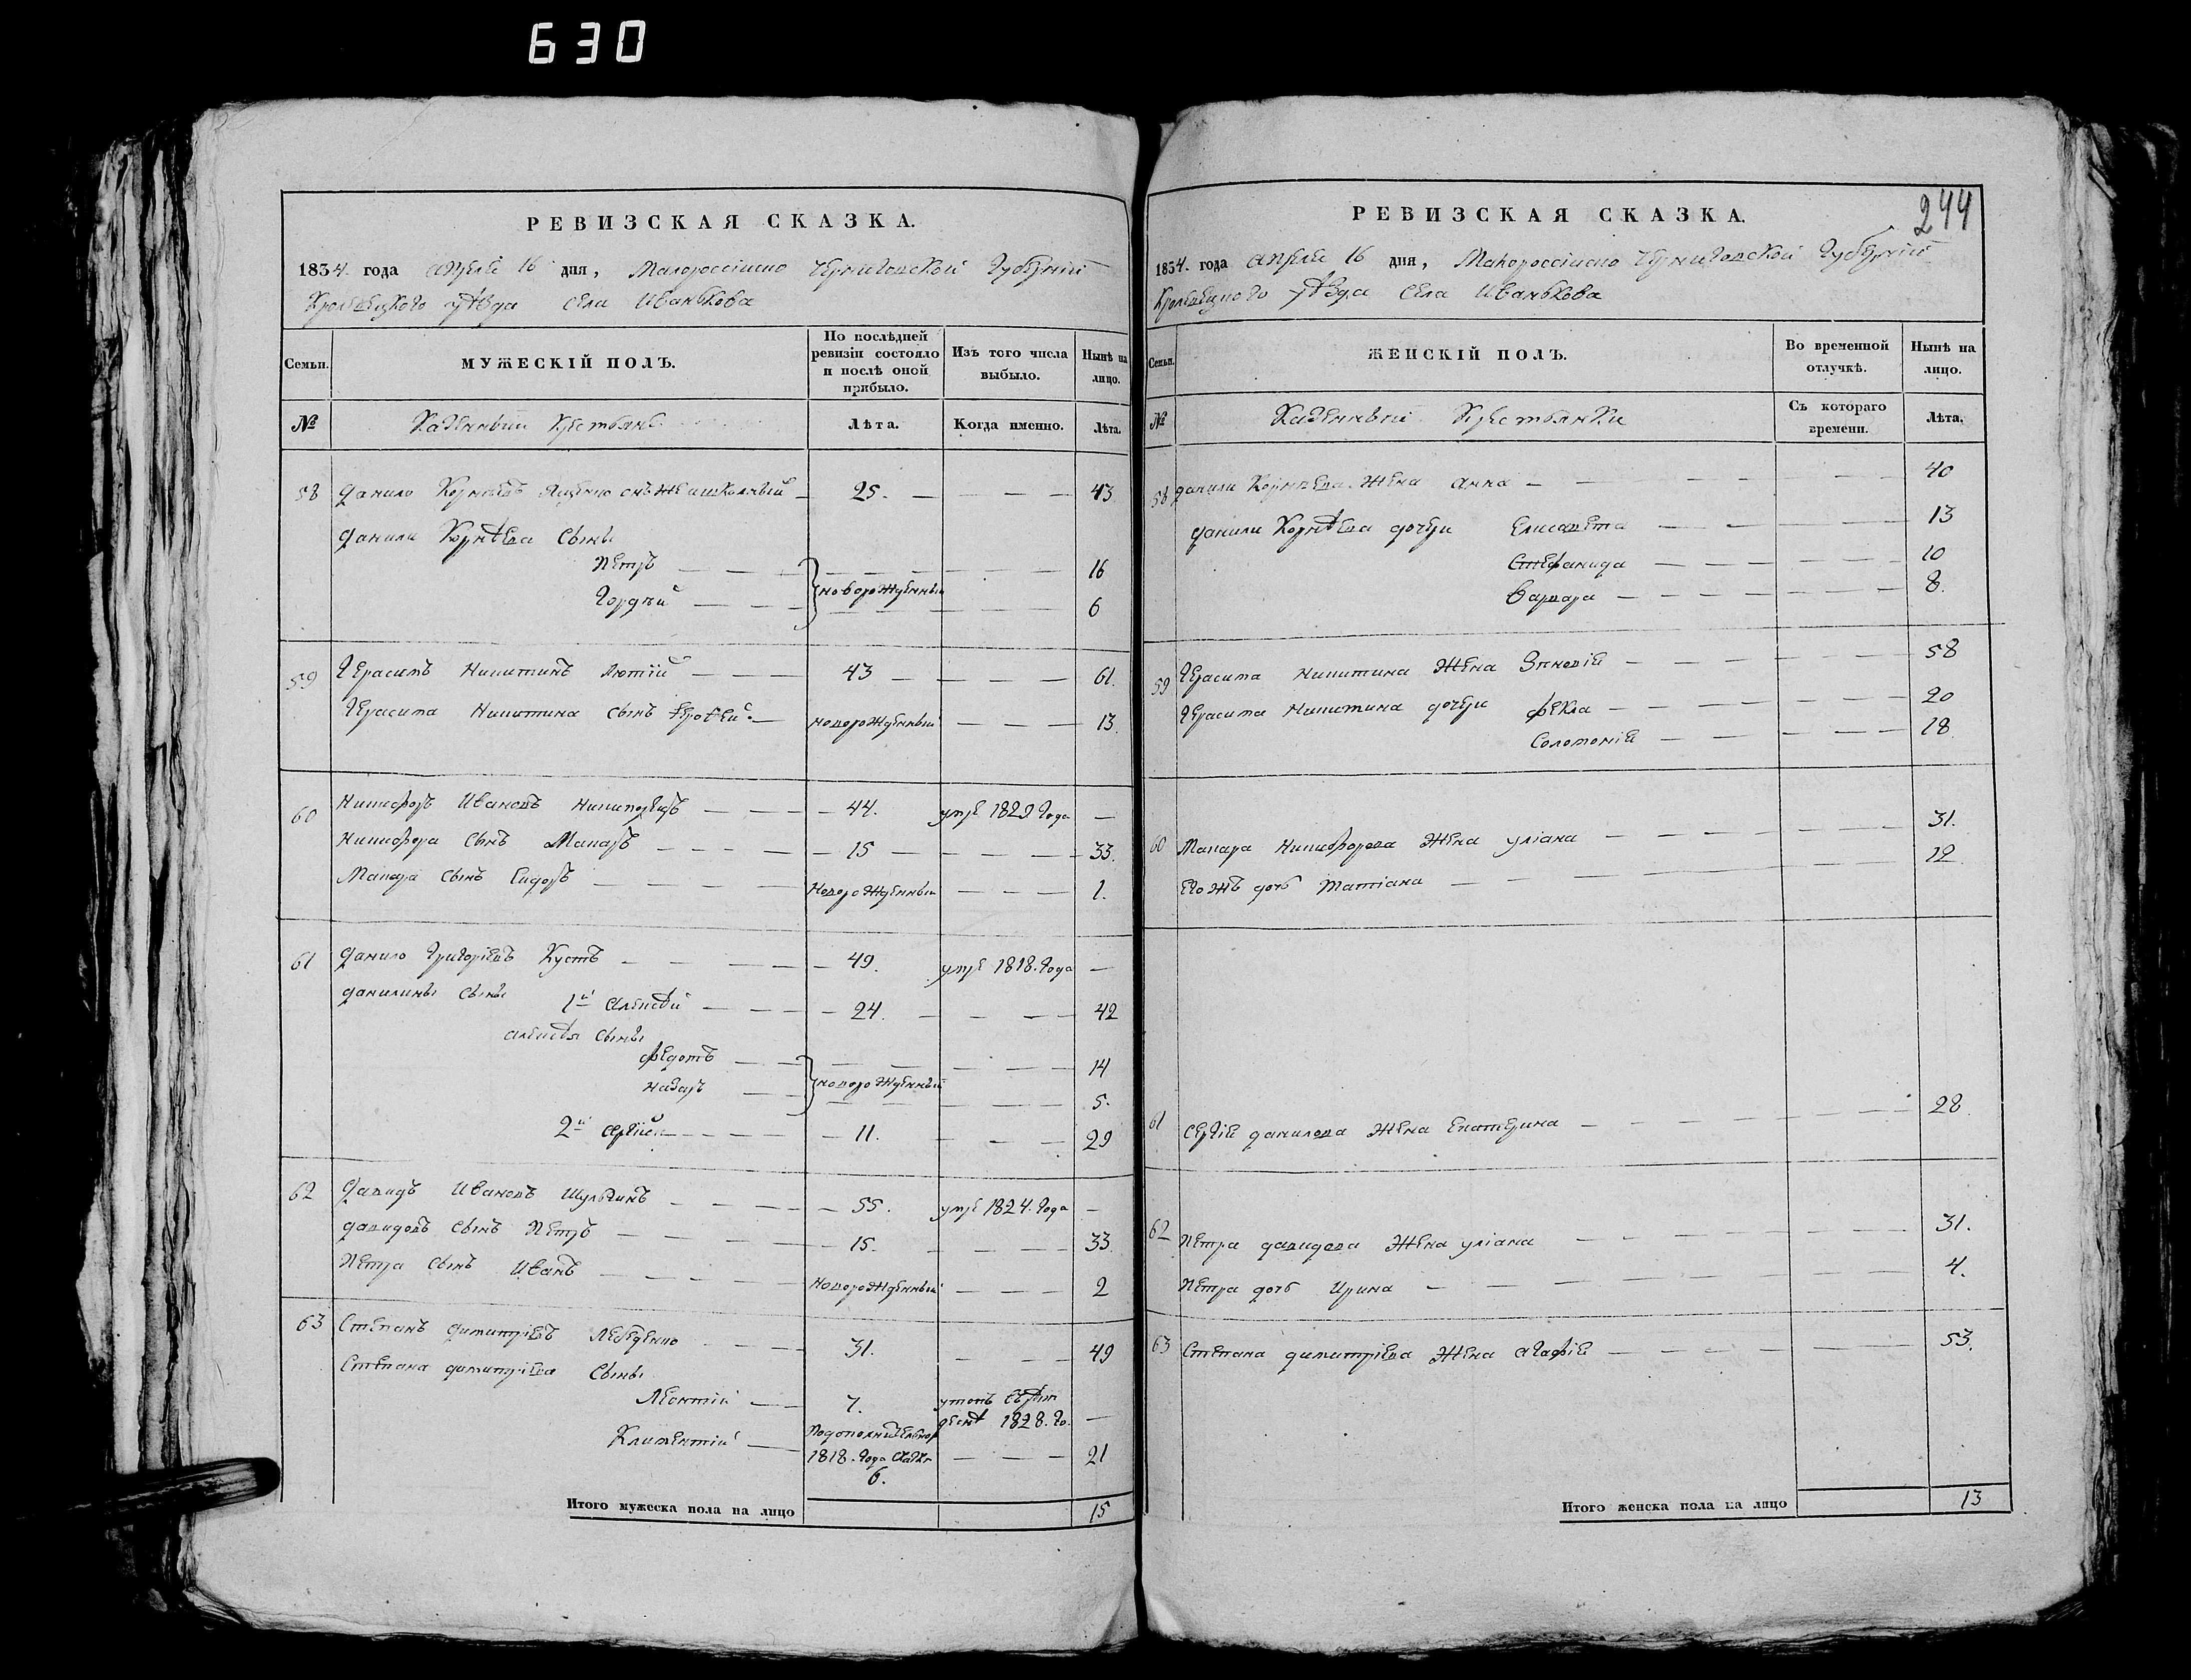 630
РЕВИЗСКАЯ СКАЗКА.
1834. года апреля 16 дня, Малороссийско Черниговской Губерніи
Кролевецкого уѣзда села Иванькова
Семьи.
МУЖЕСКІЙ ПОЛЪ.
По послѣдней ревизіи состояло и послѣ оной прибыло.
Изъ того числа выбыло.
Нынѣ на лицо.
№ Казенныи Крестьяне Лѣта. Когда именно. Лѣта.
58 Данило Корнѣевъ Ященко онъ же Школный 25. 43
Данила Корнѣева сыны
Петръ 16
новорожденныи
Гордѣй 6
59 Герасимъ Никитинъ Лютій 43 61.
Герасима Никитина сынъ Ерофей новорожденный 13.
60 Никифоръ Ивановъ 44. умре 1829 года
Никифора сынъ Макаръ 15 33.
Макара сынъ Сидоръ Новорожденный 1.
61 Данило Григоріевъ Кустъ 49. умре 1818. года
Данилины сыны 1й Алексѣй 24. 42
Алексѣя сыны
Федотъ 14
новорожденный
Назаръ 5.
2й Сергій 11. 29
62 Давидъ Ивановъ Шульгинъ 55. умре 1824. года
Давидовъ сынъ Петръ 15. 33.
Петра сынъ Иванъ новорожденный 2
63 Степанъ Димитріевъ Лебеденко 31. 49
Степана Димитріева сыны
Леонтій 7. 1828. го.
Климентій 1818. года 6. 21
Итого мужеска пола на лицо 15
244
РЕВИЗСКАЯ СКАЗКА.
1834. года апреля 16 дня, Малороссийско Черниговской Губерніи
Кролевецкого уѣзда села Иванькова
Семьи.
ЖЕНСКІЙ ПОЛЪ.
Во временной отлучкѣ.
Нынѣ на лицо.
№ Казенныи Крестьянки Съ котораго времени. Лѣта.
58 Данила Корнѣева жена Анна 40
Данила Корнѣева дочери Елисавета 13
Стефанида 10
Варвара 8.
59 Герасима Никитина жена Зиновія 58
Герасима Никитина дочери Фекла 20
Соломонія 18.
60 Макара Никифорова жена Уліана 31.
Его жъ дочь Татіана 12.
61 Сергія Данилова жена Екатерина 28.
62 Петра Давидова жена Уліана 31.
Петра дочь Ирина 4.
63 Степана Димитріева жена Агафія 53.
Итого женска пола на лицо 13